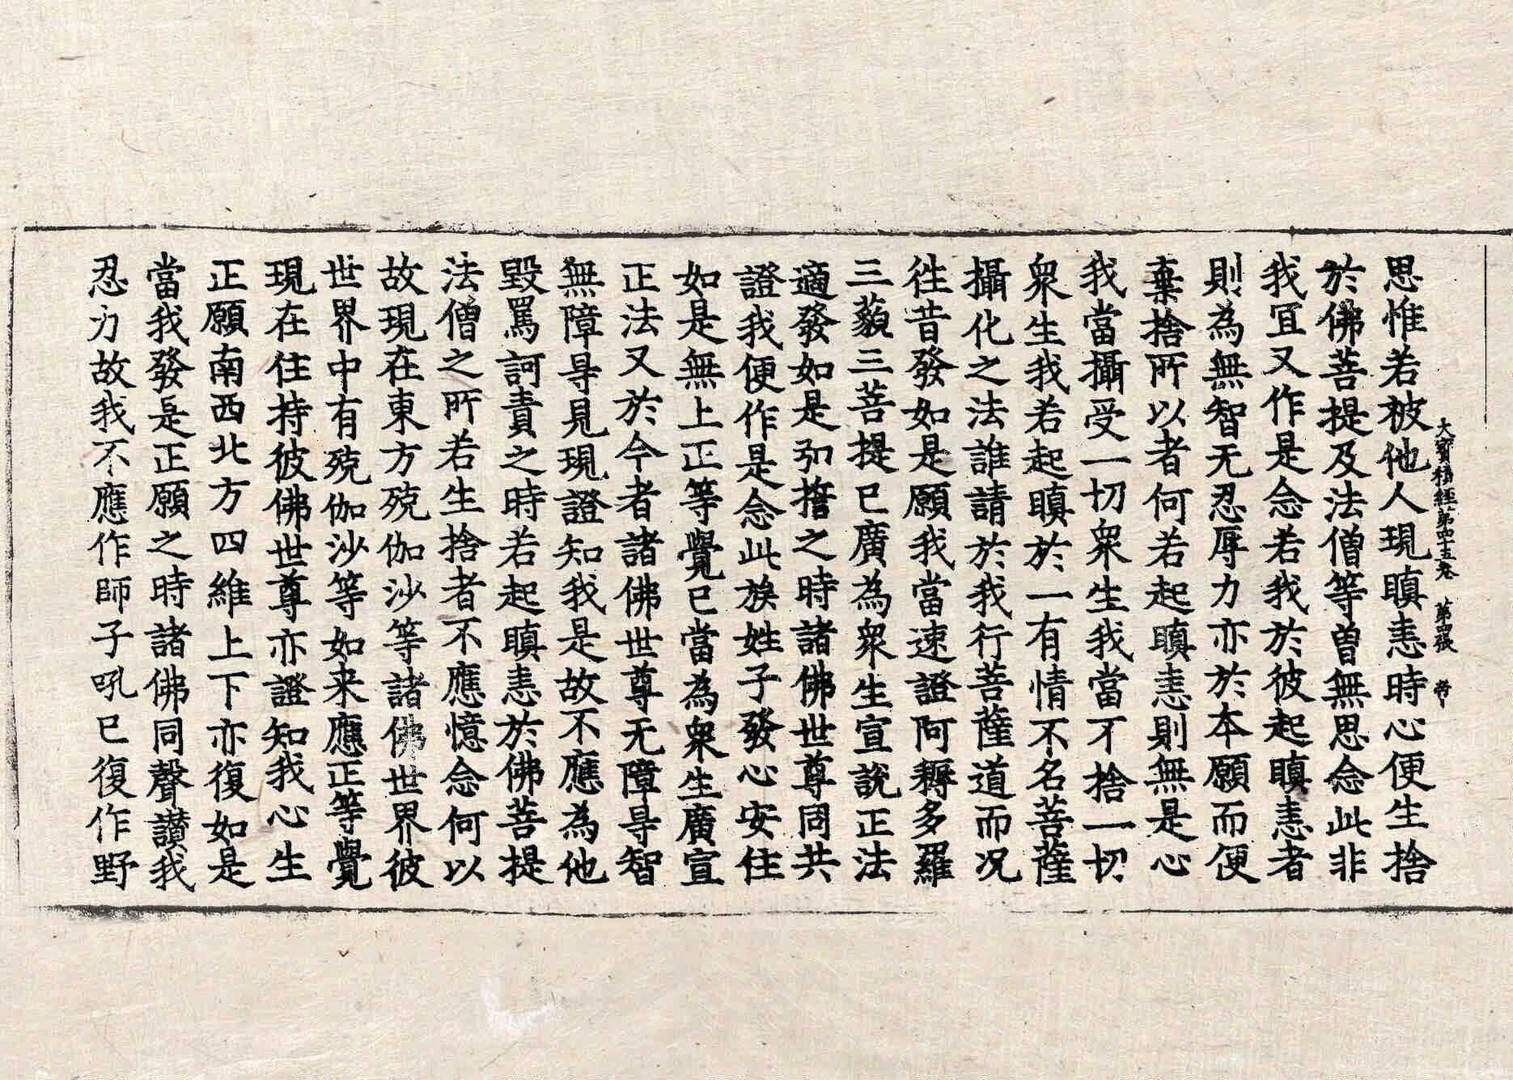 大寶積經第四十五卷 第四張 帝
思惟若被他人現瞋恚時心便生捨
於佛菩提及法僧等曽無思念此非
我冝又作是念若我於彼起瞋恚者
則為無智无忍辱力亦於本願而便
棄捨所以者何若起瞋恚則無是心
我當攝受一切衆生我當不捨一切
衆生我若起瞋於一有情不名菩薩
攝化之法誰請於我行菩薩道而况
往昔發如是願我當速證阿耨多羅
三藐三菩提已廣為衆生宣說正法
適發如是弘誓之時諸佛世尊同共
證我便作是念此族姓子發心安住
如是無上正等覺已當為衆生廣宣
正法又於今者諸佛世尊无障㝵智
無障㝵見現證知我是故不應為他
毀罵訶責之時若起瞋恚於佛菩提
法僧之所若生捨者不應憶念何以
故現在東方殑伽沙等諸佛世界彼
世界中有殑伽沙等如来應正等覺
現在住持彼佛世尊亦證知我心生
正願南西北方四維上下亦復如是
當我發是正願之時諸佛同聲讃我
忍力故我不應作師子吼已復作野